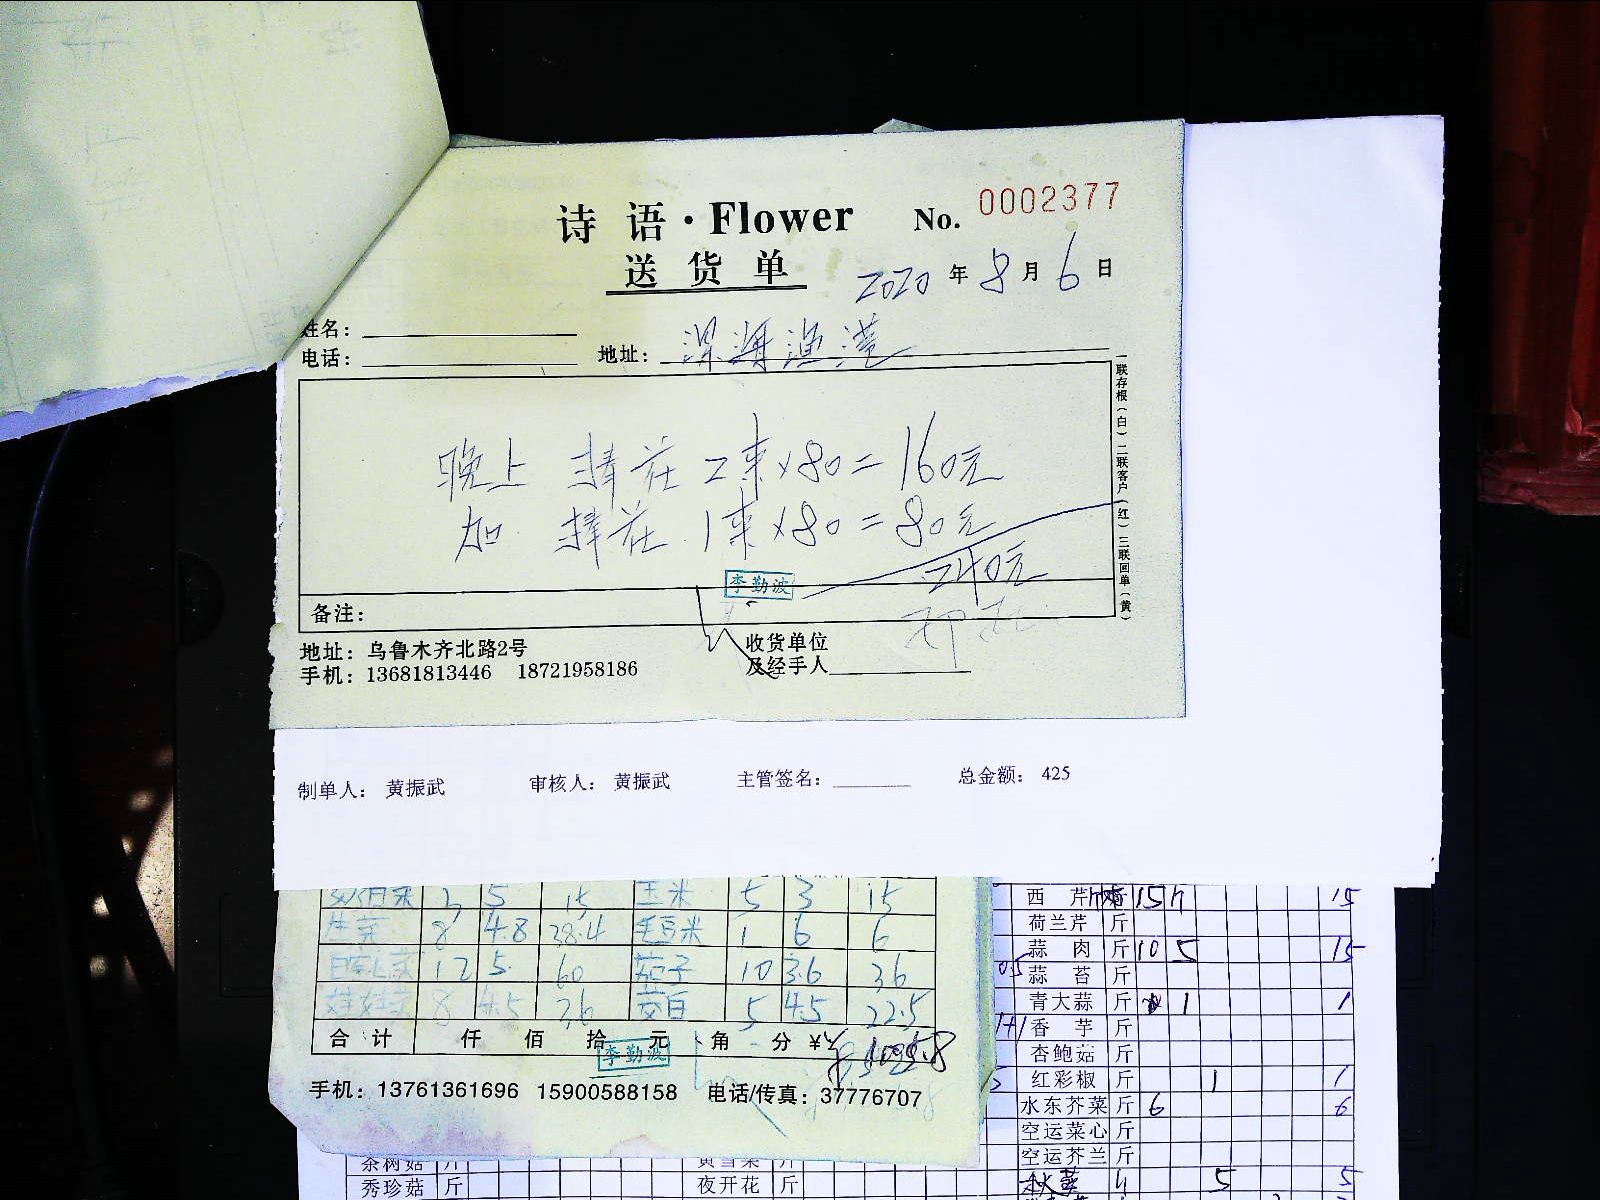 诗语·Flower No. 0002377
送货单 2020年8月6日
姓名：
电话： 地址：深海渔港
晚上 捧花 2束×80=160元
加 捧花 1束×80=80元
240元
李勤波
备注：
一联存根（白）二联客户（红）三联回单（黄）
地址：乌鲁木齐北路2号 收货单位
手机：13681813446 18721958186 及经手人
制单人： 黄振武 审核人： 黄振武 主管签名： 总金额： 425
5 15 玉米 5 3 15
生菜 8 4.8 38.4 毛豆米 1 6 6
12 5 60 茄子 10 3.6 36
娃娃菜 8 4.5 36 茭白 5 4.5 22.5
合计 仟 佰 拾 元 角 分 ¥
李勤波
手机：13761361696 15900588158 电话/传真：37776707
西芹 15 15
荷兰芹 斤
蒜肉 斤 10 5 15
0.5 蒜苔 斤
青大蒜 斤 1 1
1+1 香芋 斤
杏鲍菇 斤
红彩椒 斤 1 1
水东芥菜 斤 6 6
空运菜心 斤
空运芥兰 斤
5 5
茶树菇 斤 黄豆菜 斤
秀珍菇 斤 夜开花 斤